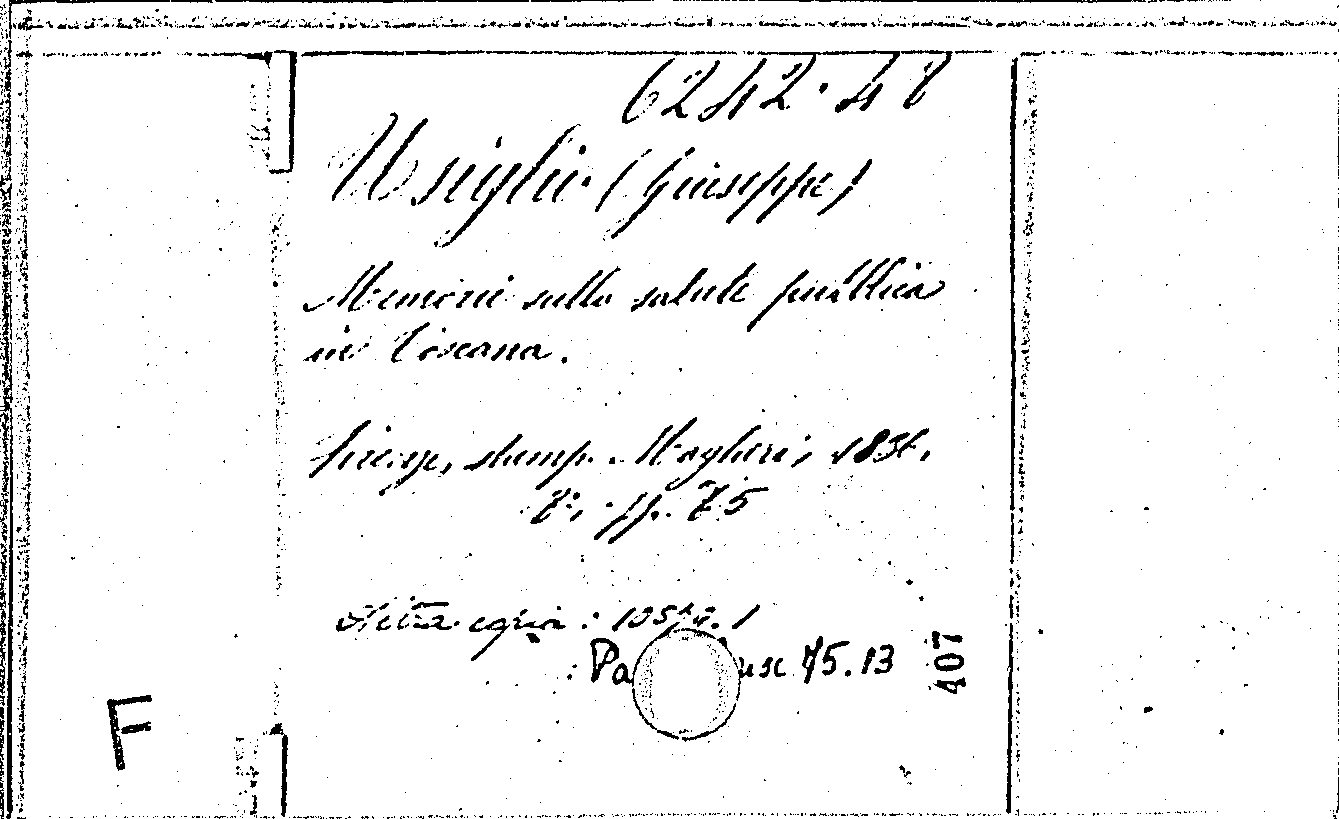 6242.48
Usigli (Giuseppe)
Memorie sulla salute pubblica
in Toscana.
Firenze, stamp. Magheri,
8°, pp. 75
Altra copia:
: 75.13
407
F